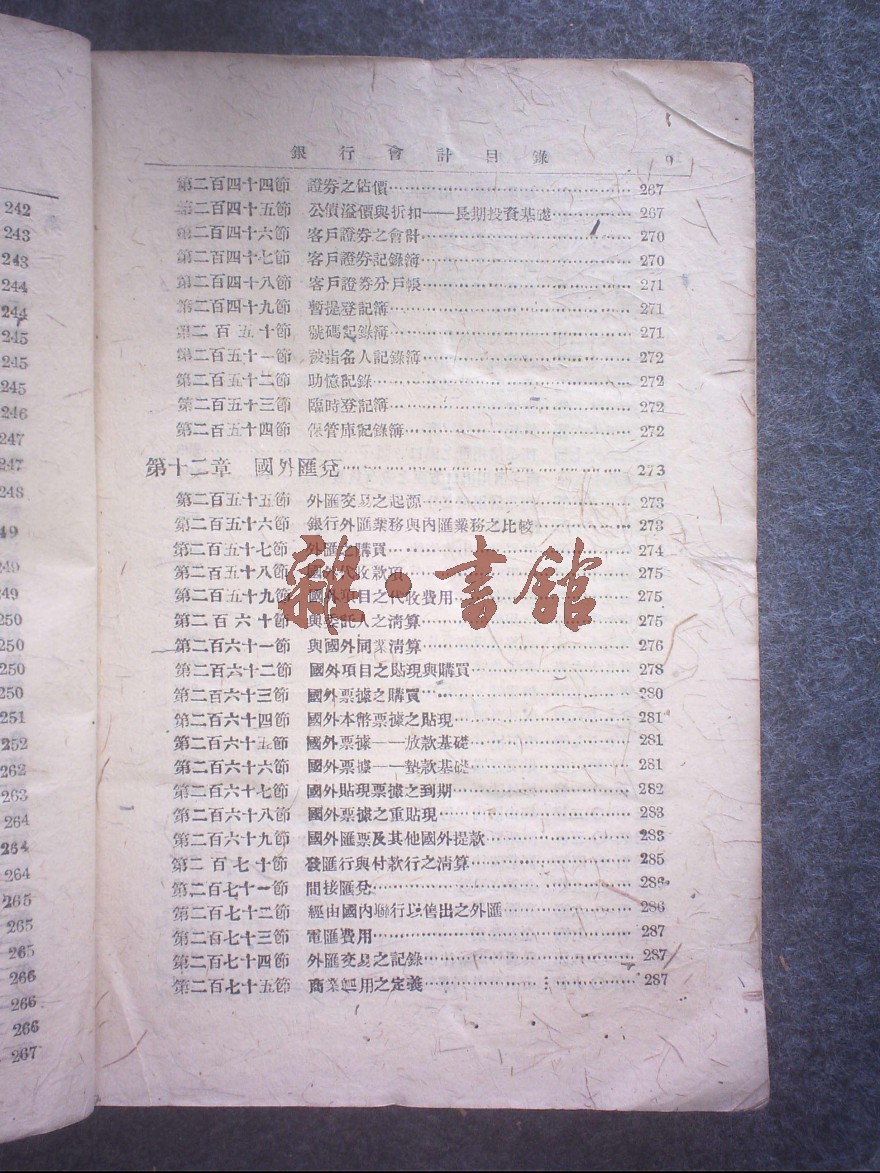 242
243
243
244
244
245
245
245
246
247
247
248
249
249
249
250
250
250
250
251
252
262
263
264
264
264
265
265
265
266
266
266
267
銀行會計目錄 9
第二百四十四節 證券之估價 267
第二百四十五節 公債溢價與折扣——長期投資基礎 267
第二百四十六節 客戶證券之會計 270
第二百四十七節 客戶證券記錄簿 270
第二百四十八節 客戶證券分戶帳 271
第二百四十九節 暫提登記簿 271
第二百五十節 號碼記錄簿 271
第二百五十一節 被指名人記錄簿 272
第二百五十二節 助憶記錄 272
第二百五十三節 臨時登記簿 272
第二百五十四節 保管庫記錄簿 272
第十二章 國外匯兌 273
第二百五十五節 外匯交易之起源 273
第二百五十六節 銀行外匯業務與內匯業務之比較 273
第二百五十七節 外匯之購買 274
第二百五十八節 國外代收款項 275
第二百五十九節 國外項目之代收費用 275
第二百六十節 與委託人之清算 275
第二百六十一節 與國外同業清算 276
第二百六十二節 國外項目之貼現與購買 278
第二百六十三節 國外票據之購買 280
第二百六十四節 國外本幣票據之貼現 281
第二百六十五節 國外票據——放款基礎 281
第二百六十六節 國外票據——墊款基礎 281
第二百六十七節 國外貼現票據之到期 282
第二百六十八節 國外票據之重貼現 283
第二百六十九節 國外匯票及其他國外提款 283
第二百七十節 發匯行與付款行之清算 285
第二百七十一節 間接匯兌 286
第二百七十二節 經由國內聯行以售出之外匯 286
第二百七十三節 電匯費用 287
第二百七十四節 外匯交易之記錄 287
第二百七十五節 商業信用之定義 287
雜·書館